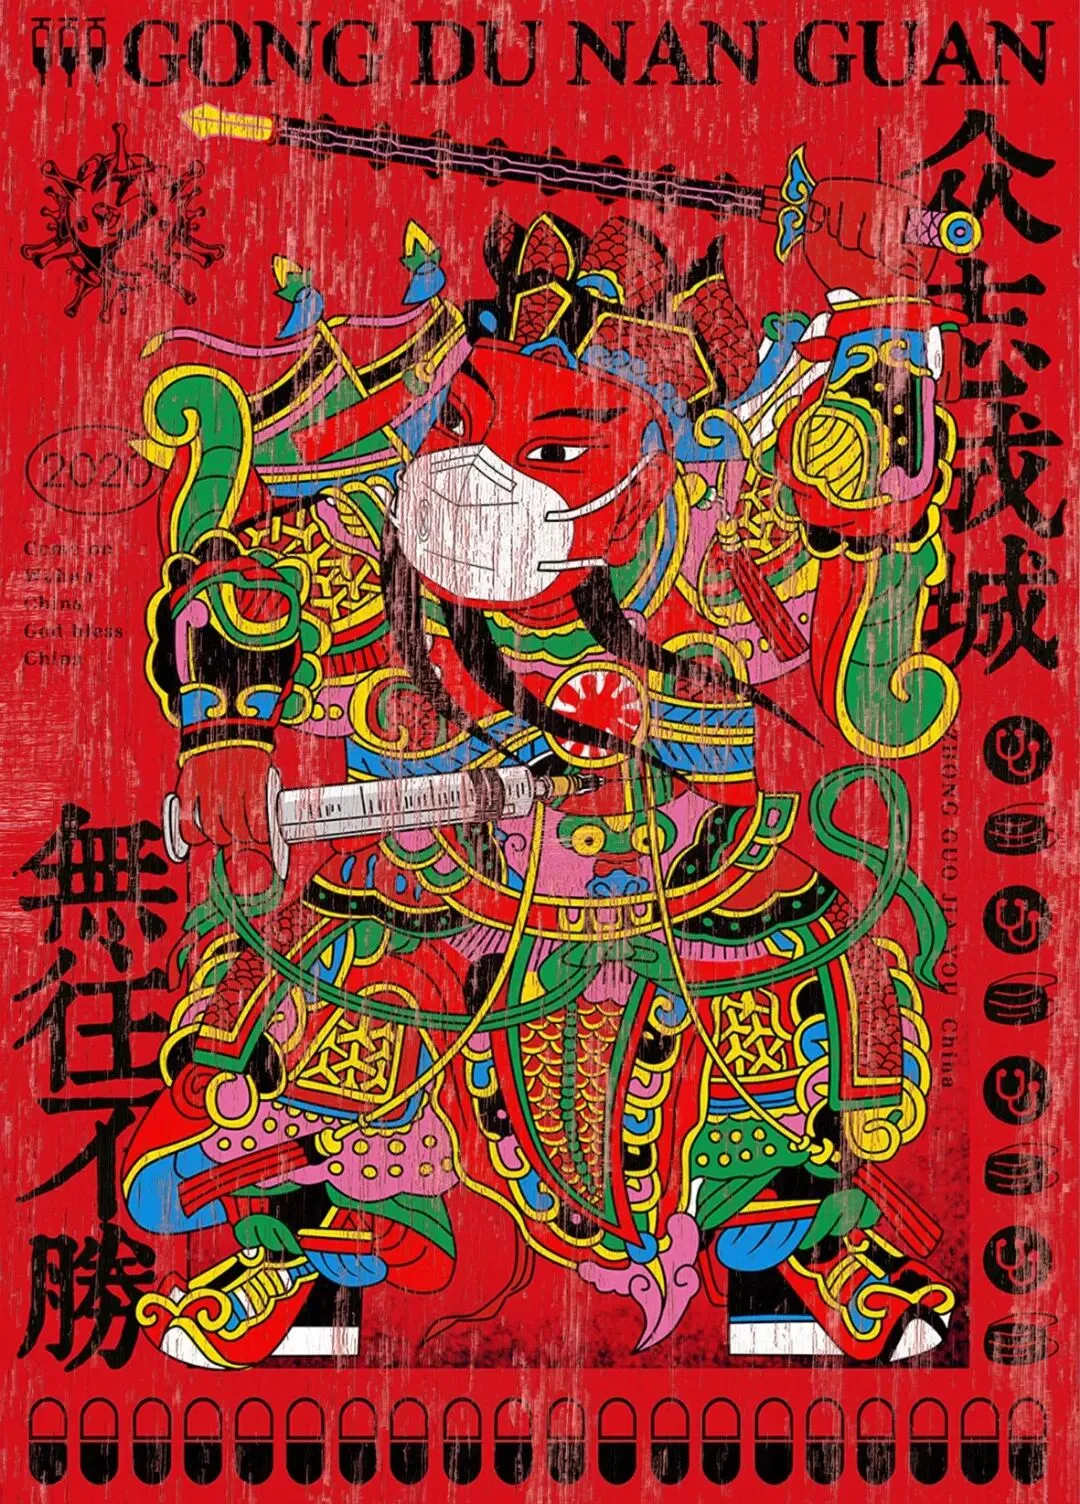 GONG DU NAN GUAN
众志成城
2020
Come on
Wuhan
China
God bless
China
無往不勝
ZHONG GUO JIA YOU China